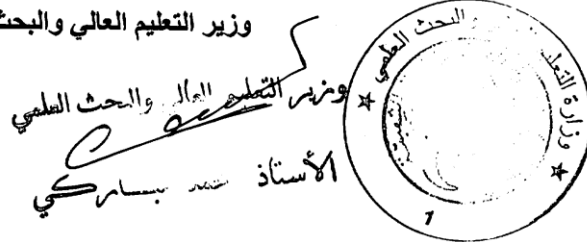 وزير التعليم العالي والبحث
وزير التعليم العالي والبحث العلمي
الأستاذ
وزارة التعليم
والبحث العلمي
1